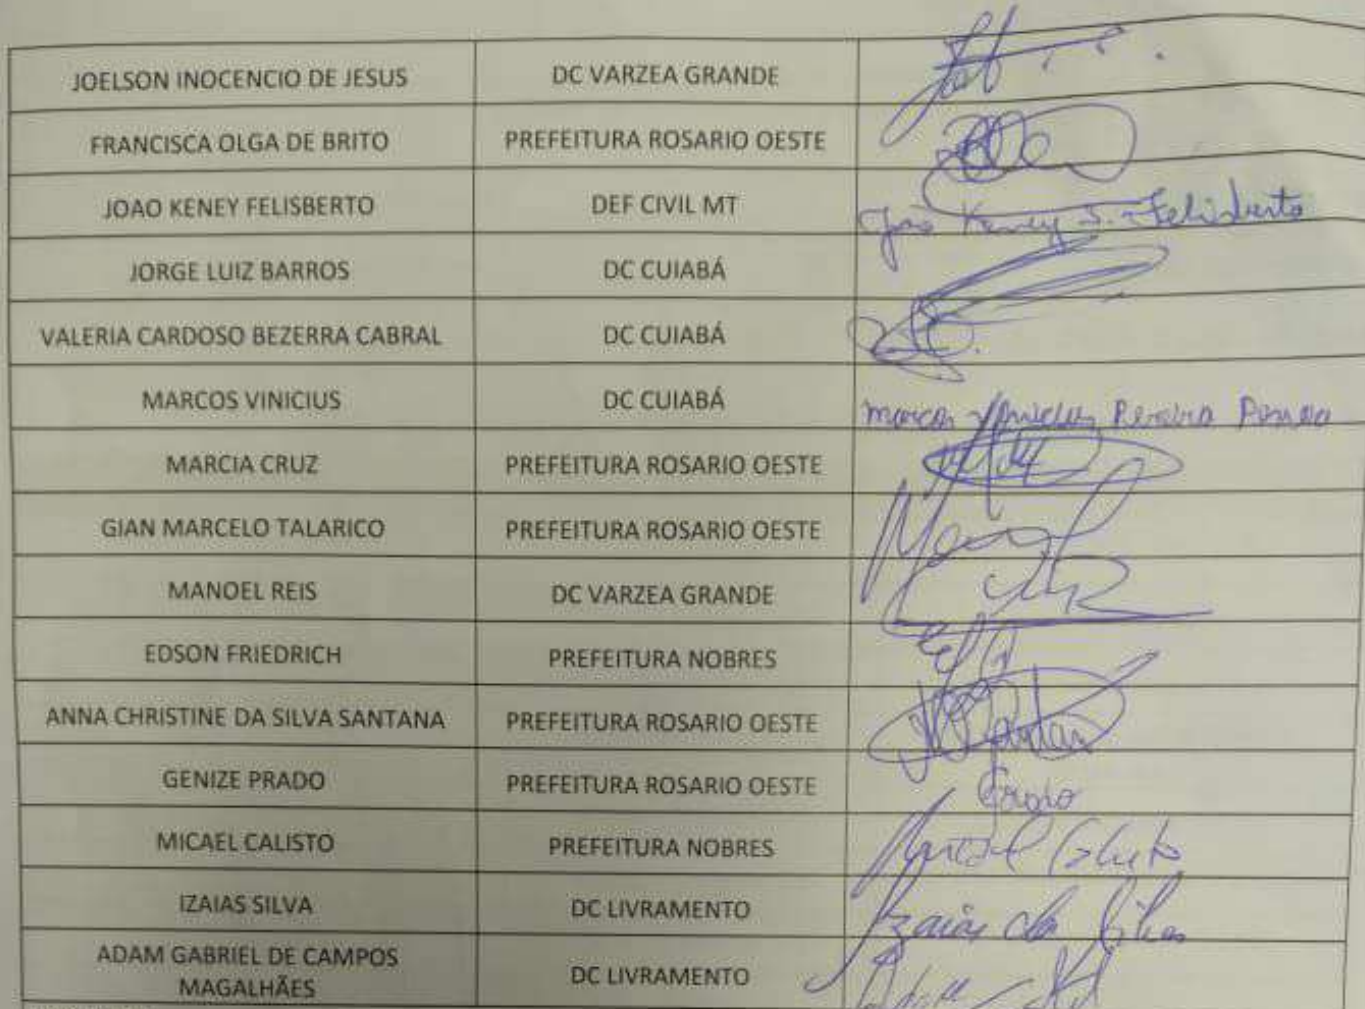 JOELSON INOCENCIO DE JESUS DC VARZEA GRANDE
FRANCISCA OLGA DE BRITO PREFEITURA ROSARIO OESTE
JOAO KENEY FELISBERTO DEF CIVIL MT João Keney S. Felisberto
JORGE LUIZ BARROS DC CUIABÁ
VALERIA CARDOSO BEZERRA CABRAL DC CUIABÁ
MARCOS VINICIUS DC CUIABÁ Marcos Vinicius Pereira
MARCIA CRUZ PREFEITURA ROSARIO OESTE
GIAN MARCELO TALARICO PREFEITURA ROSARIO OESTE
MANOEL REIS DC VARZEA GRANDE
EDSON FRIEDRICH PREFEITURA NOBRES
ANNA CHRISTINE DA SILVA SANTANA PREFEITURA ROSARIO OESTE
GENIZE PRADO PREFEITURA ROSARIO OESTE Prado
MICAEL CALISTO PREFEITURA NOBRES Micael Calisto
IZAIAS SILVA DC LIVRAMENTO Izaias da Silva
ADAM GABRIEL DE CAMPOS
MAGALHÃES DC LIVRAMENTO